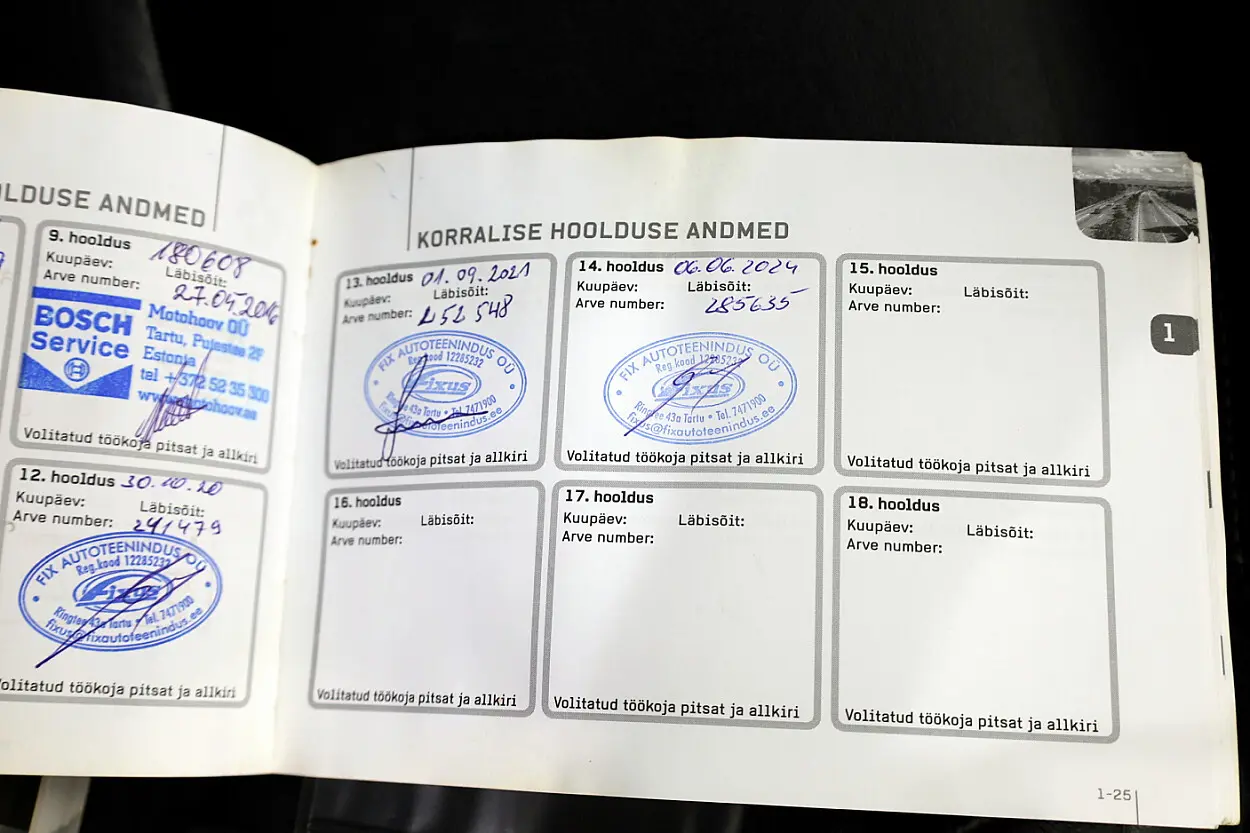 OLDUSE ANDMED
9. hooldus 180608
Kuupäev: Läbisõit:
Arve number: 27.04.2016
BOSCH
Service
Motohoov OÜ
Tartu,
Estonia
tel +372 52 35 300
Volitatud töökoja pitsat ja allkiri
12. hooldus 30.10.20
Kuupäev: Läbisõit:
Arve number: 241479
FIX AUTOTEENINDUS OÜ
Reg.kood 12285232
Fixus
Ringtee 43a Tartu • Tel. 7471900
fixus@fixautoteenindus.ee
Volitatud töökoja pitsat ja allkiri
KORRALISE HOOLDUSE ANDMED
13. hooldus 01.09.2021
Kuupäev: Läbisõit:
Arve number: 252548
FIX AUTOTEENINDUS OÜ
Reg.kood 12285232
Fixus
43a Tartu • Tel. 7471900
Volitatud töökoja pitsat ja allkiri
14. hooldus 06.06.2024
Kuupäev: Läbisõit:
Arve number: 285635
FIX AUTOTEENINDUS OÜ
Reg.kood 12285232
Fixus
Ringtee 43a Tartu • Tel. 7471900
fixus@fixautoteenindus.ee
Volitatud töökoja pitsat ja allkiri
15. hooldus
Kuupäev: Läbisõit:
Arve number:
Volitatud töökoja pitsat ja allkiri
1
16. hooldus
Kuupäev: Läbisõit:
Arve number:
Volitatud töökoja pitsat ja allkiri
17. hooldus
Kuupäev: Läbisõit:
Arve number:
Volitatud töökoja pitsat ja allkiri
18. hooldus
Kuupäev: Läbisõit:
Arve number:
Volitatud töökoja pitsat ja allkiri
1-25